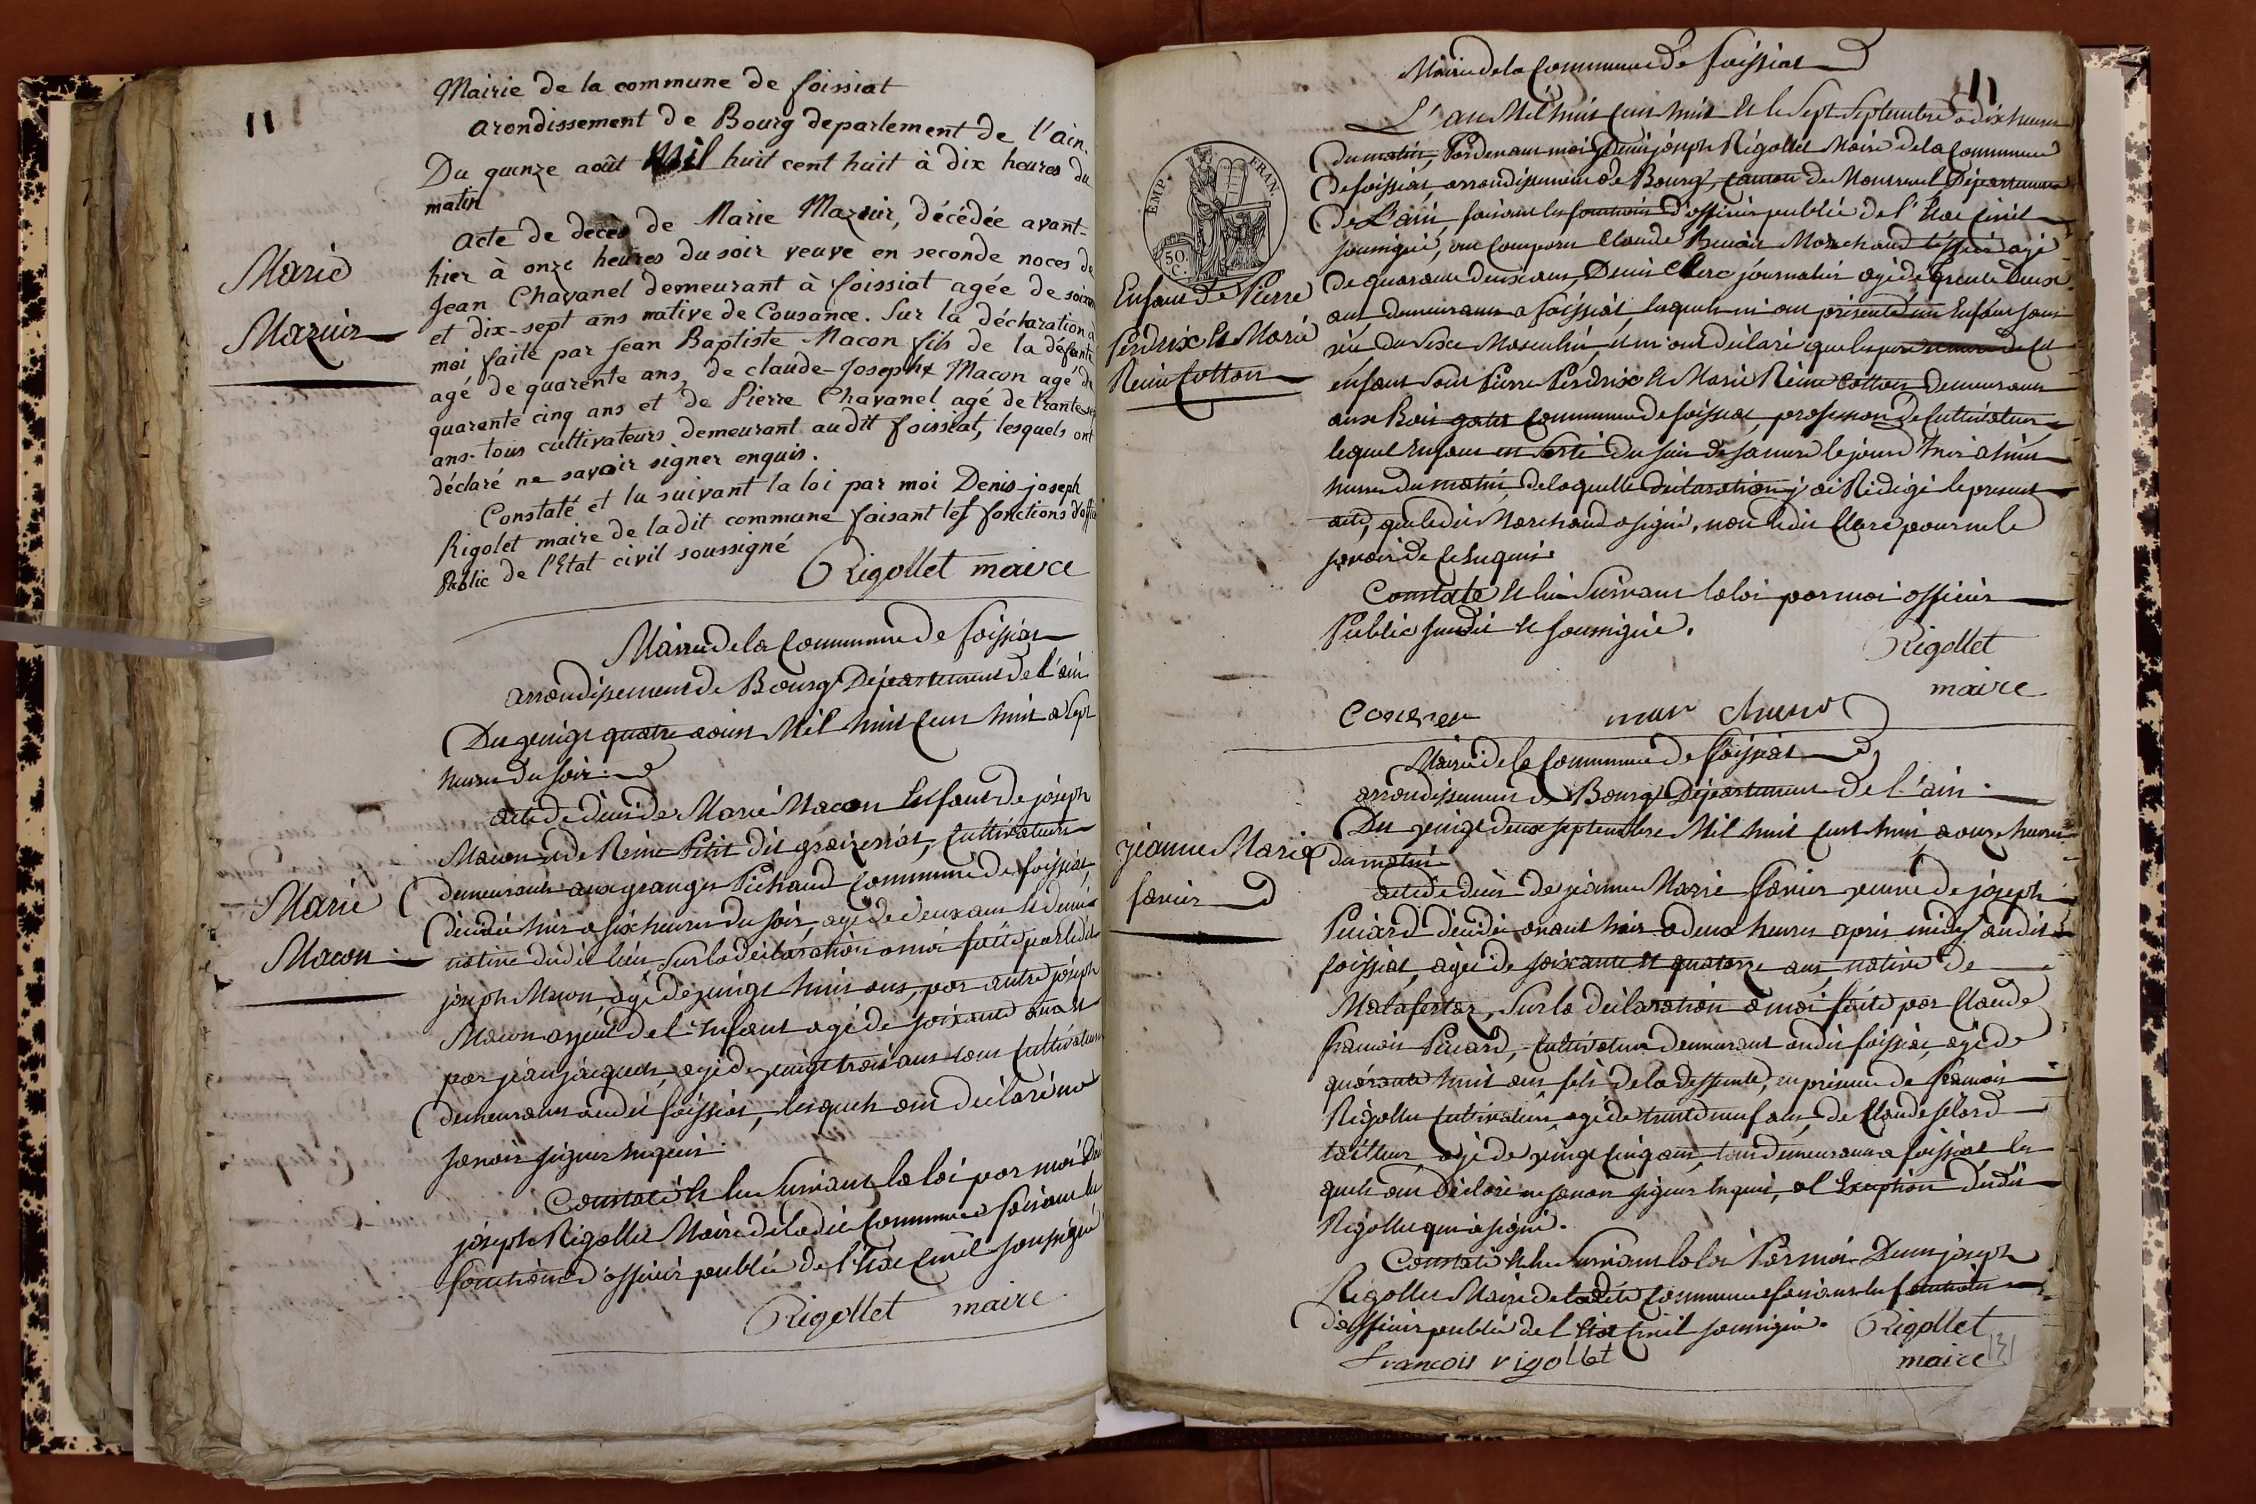 11
Mairie de la commune de foissiat
arondissement de Bourg departement de l'ain.
Du quinze août Mil huit cent huit à dix heures du
matin
acte de décès de Marie Mazuir, décédée avant-
hier à onze heures du soir veuve en seconde noces de
Jean Chavanel demeurant à foissiat agée de soixan
et dix-sept ans native de Cousance. Sur la déchration à
moi faite par Jean Baptiste Macon fils de la défante
agé de quarente ans, de claude-Joseph Macon agé de
quarente cinq ans et de Pierre Chavanel agé de trante sep
ans. tous cultivateurs demeurant audtt foissiat, lesquels ont
déclaré ne savoir signer enquis.
Constaté et lu suivant la loi par moi Denis-joseph
Rigolet maire de ladit commune faisant les fonctions d'offi
Public de l'Etat civil soussigné
Rigollet maire
Marie
Mazuir
Mairie de la Commune de foissiat
arrondissement de Bourg Département de l'ain
Du vingt quatre aoust Mil huit Cent huit a sept
heures du soir.
acte de décès de Marie Macon Enfant de joseph
Macon et de Reine Petit dit graizeriat, Cultivateurs
demeurants aux granges Pichaud Commune de foissiat,
Décédée hier a six heures du soir, agé de deux ans et demie
native dudit lieu, sur la déclaration a moi faite par ledit
joseph Macon, agé de vingt huit ans, par autre joseph
Macon ayeul de l'enfant agé de soixante ans et
par jean jacques, agé de vingt trois ans tous Cultivateurs
demeurants audit foissiat, lesquels ont déclaré ne
savoir signer enquis
Constaté et lu suivant la loi par moi Denis
joseph Rigollet Maire de ladite Commune faisant les
fonctions d'officier public de l'Etat Civil soussigné
Rigollet maire
Marie
Macon
11
Mairie de la Commune de foissiat
L'an Mil huit Cent huit et le sept septembre a dix heures
du matin, Pardevant moi Denis joseph Rigollet Maire de la Commune
de foissiat arrondissement de Bourg, canton de Montrevel Département
de L'ain, faisant les fonctions d'officier public de l'Etat Civil
soussigné, ont Comparu Claude Benoit Marchand tissier agé
de quarante deux ans, Denis Clerc journalier agé de trente deux
ans demeurants a foissiat, lesquels m'ont présenté un Enfant sans
vie du sexe Masculin, et m'ont déclaré que les pere et mere de Cet
enfant sont Pierre Perdrix et Marie Reine Cotton demeurants
aux Bois gatet Commune de foissiat, profession de Cultivateur,
lequel Enfant est sorti du sein de sa mere le jour d'hier a huit
heures du matin, de laquelle déclaration j'ai Rédigé le present
acte, que ledit Marchand a signé, non ledit Clerc pour ne le
savoir de Ce enquis
Constaté et lu suivant la loi par moi officier
Public susdit et soussigné.
Rigollet
maire
EMP. FRAN.
50.
C.
Enfant de Pierre
Perdrix et Marie
Reine Cotton
Mairie de la Commune de foissiat
arrondissement de Bourg Département de l'ain.
Du vingt deux septembre Mil huit Cent huit a onze heures
du matin
acte de décès de jeanne Marie favier veuve de joseph
Piciard décédée avant hier a deux heures après midy audit
foissiat, agée de soixante et quatorze ans, native de
Malafertaz, sur la déclaration a moi faite par Claude
francois Piciard, Cultivateur demeurant audit foissiat, agé de
quarante huit ans fils de la deffunte, en présence de francois
Rigollet Cultivateur, agé de trente neuf ans, de Claude félard
tailleur agé de vingt Cinq ans, tous demeurants a foissiat les
quels ont Déclaré ne savoir signer enquis, a l'Exception dudit
Rigollet qui a signé.
Constaté et lu suivant la loi Par moi Denis joseph
Rigollet Maire de ladite Commune faisant les fonctions
d'officier public de l'Etat Civil soussigné.
Rigollet
maire
francois rigollet
jeanne Marie
favier
131